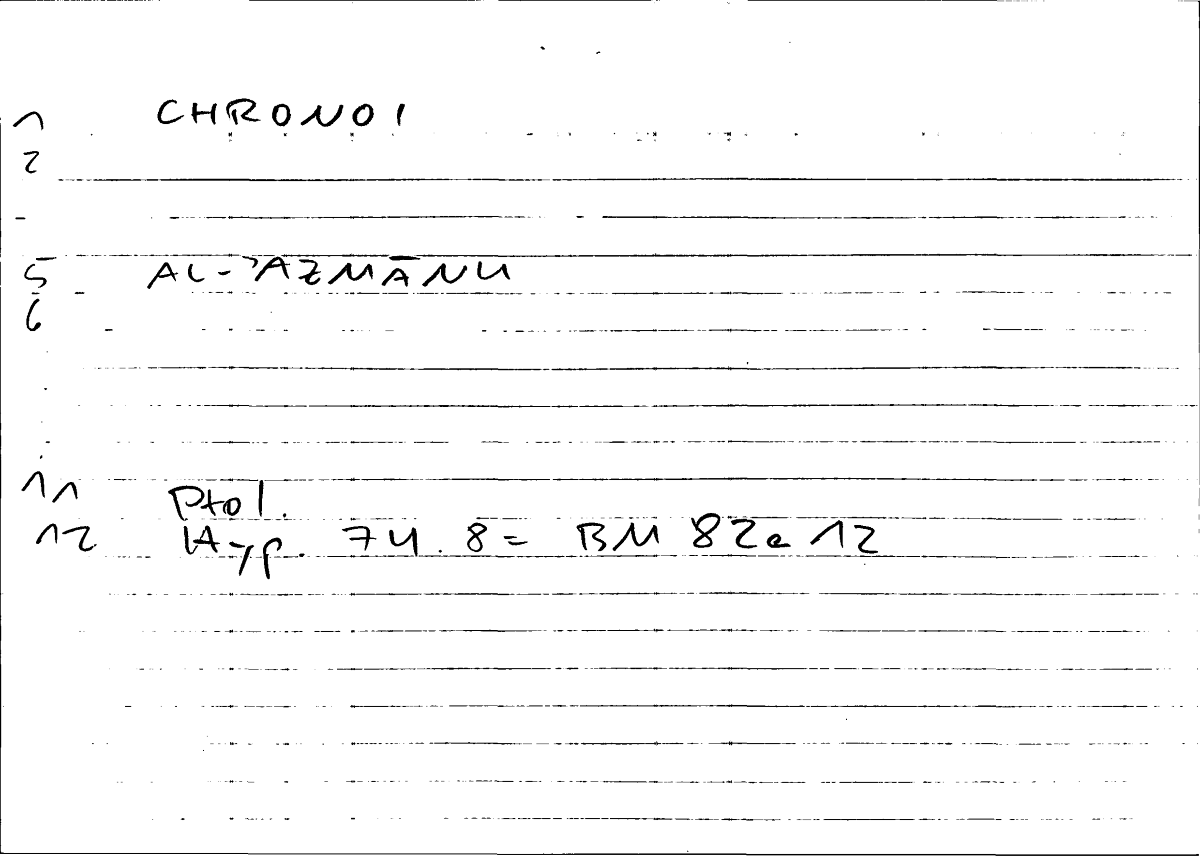 1 CHRONOI
2
-
5 AL-ʾAZMĀNU
6
11 Ptol.
12 Hyp. 74.8 = BM 82a 12